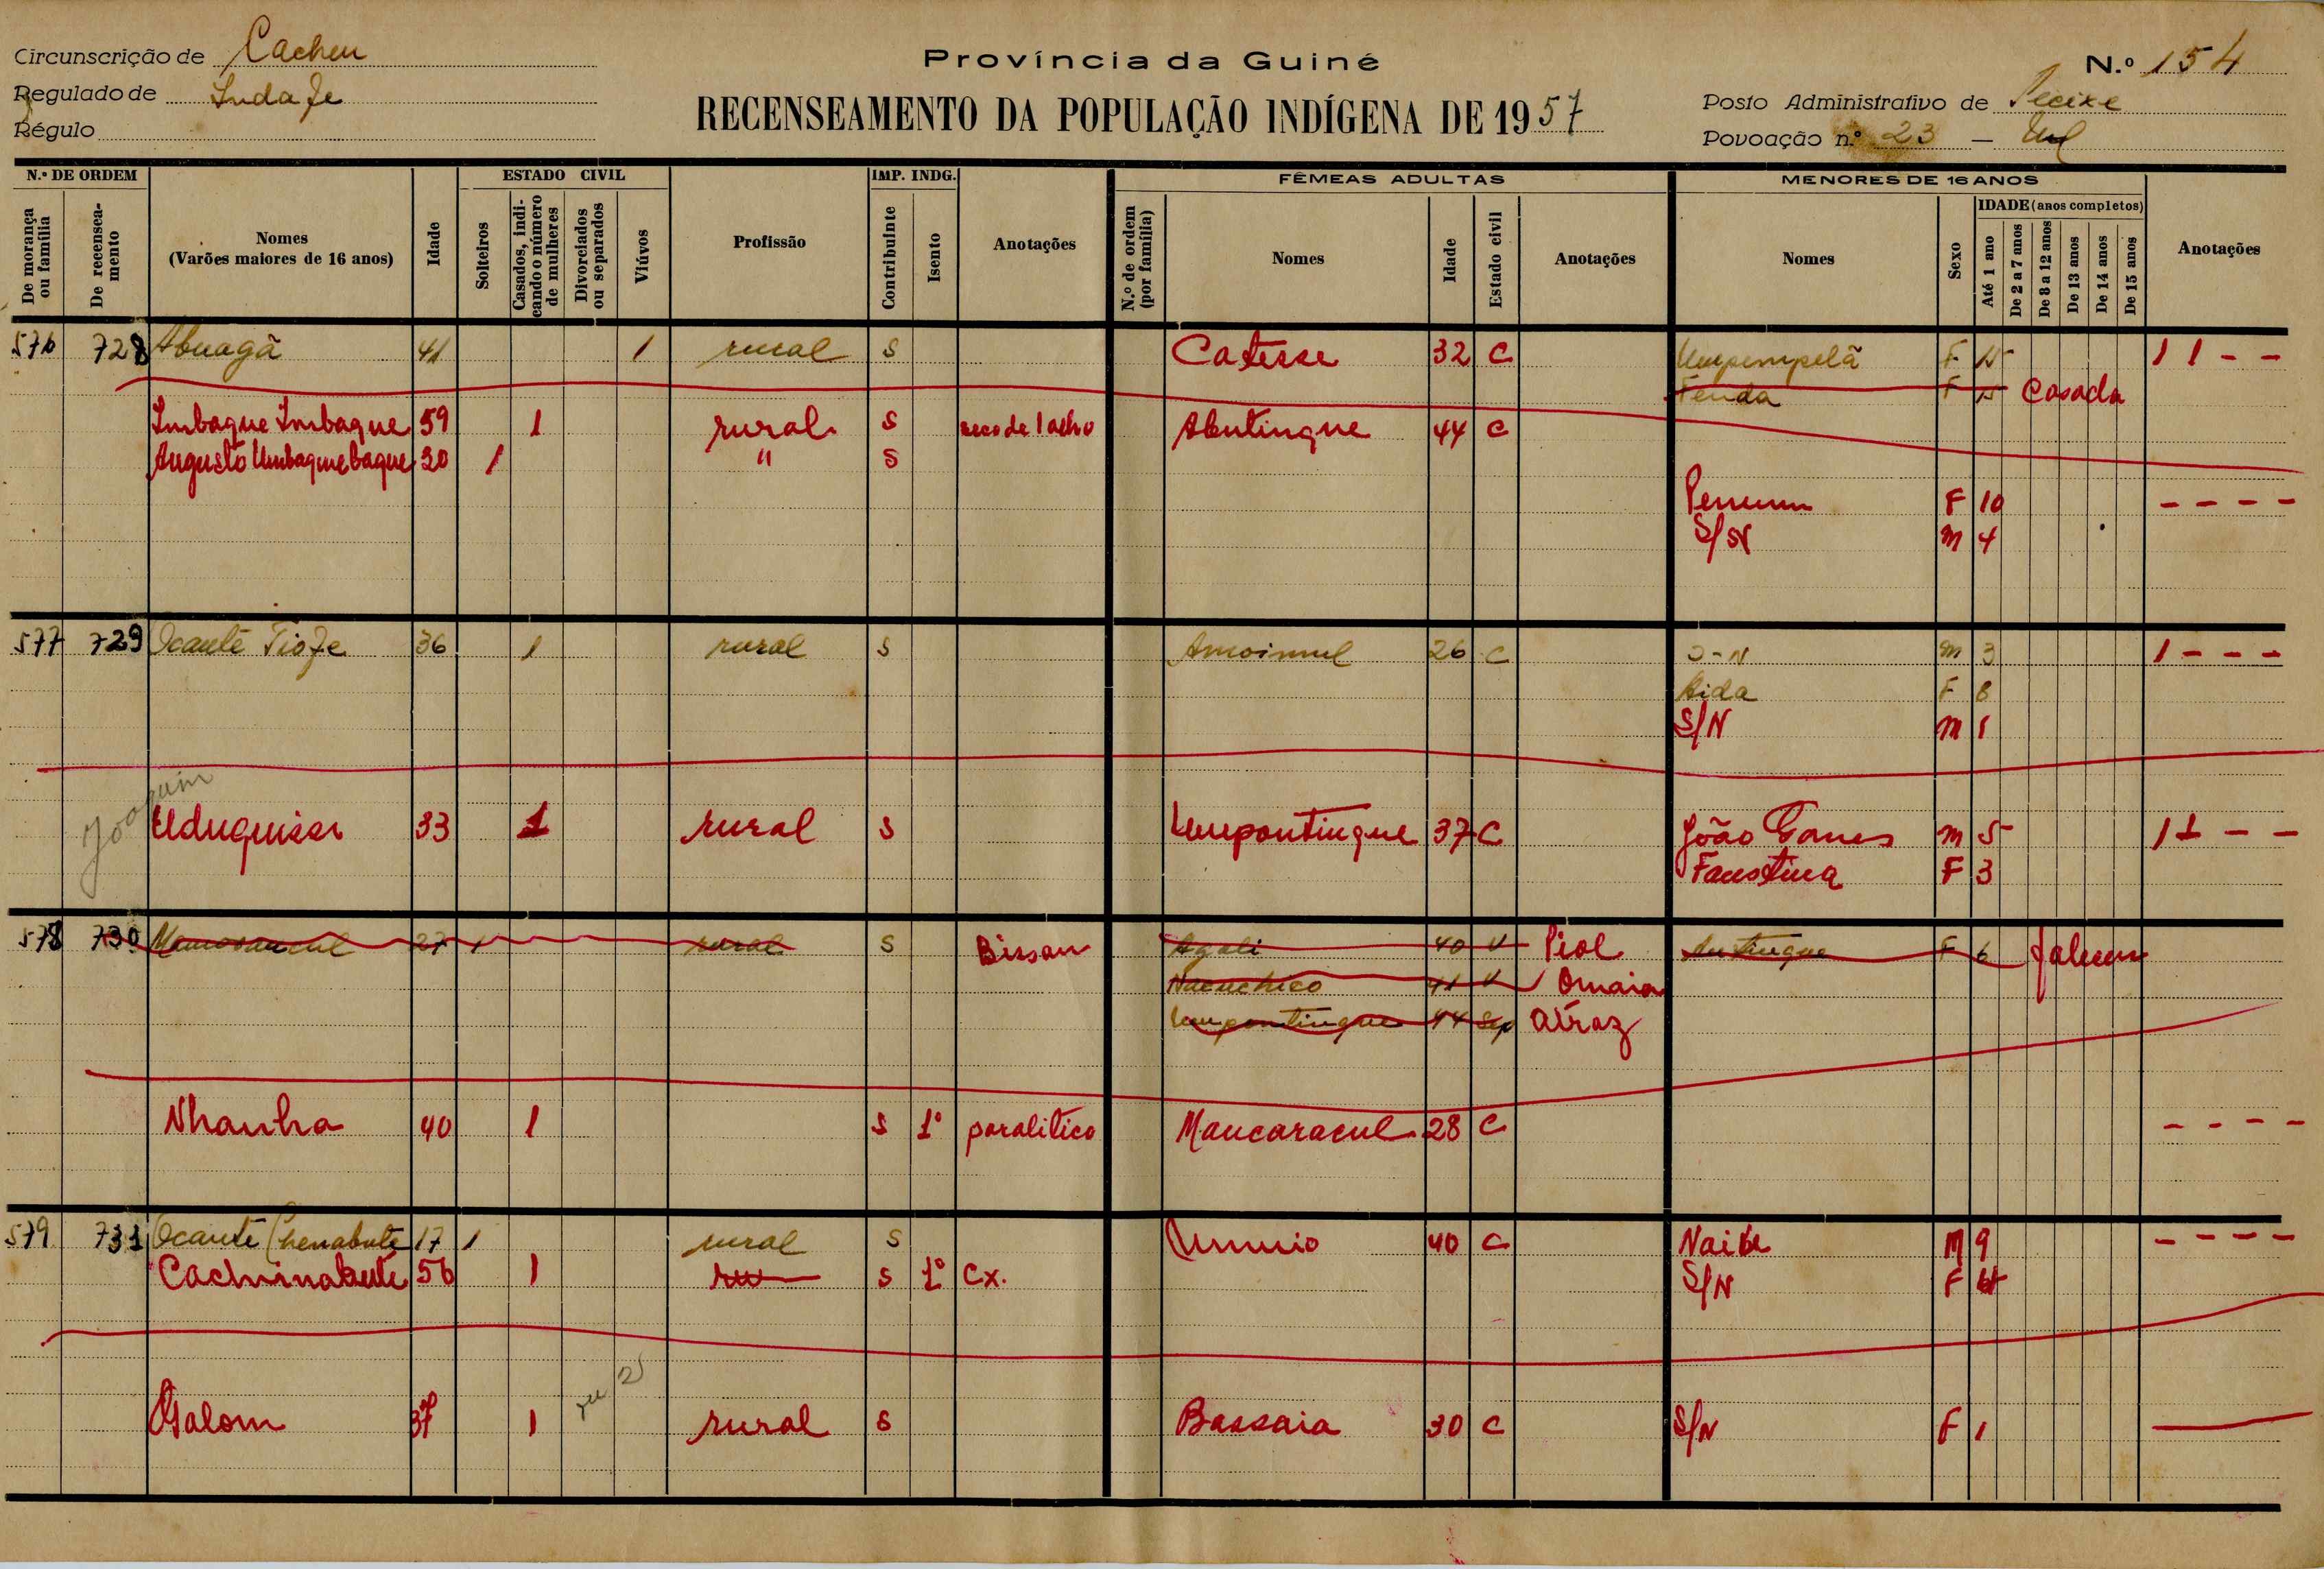 Circunscrição de Cacheu
Regulado de
Régulo
Província da Guiné
RECENSEAMENTO DA POPULAÇÃO INDÍGENA DE 1957
N.º 154
Posto Administrativo de Pecixe
Povoação n.º 23 —
N.º DE ORDEM
De morança ou família
De recenseamento
Nomes
(Varões maiores de 16 anos)
Idade
ESTADO CIVIL
Solteiros
Casados, indicando o número de mulheres
Divorciados ou separados
Viúvos
Profissão
IMP. INDG.
Contribuinte
Isento
Anotações
FÊMEAS ADULTAS
N.º de ordem (por família)
Nomes
Idade
Estado civil
Anotações
MENORES DE 16 ANOS
Nomes
Sexo
IDADE (anos completos)
Até 1 ano
De 2 a 7 anos
De 8 a 12 anos
De 13 anos
De 14 anos
De 15 anos
Anotações
576 728 Abuagã 41 1 rural S Catesse 32 C Umpempelã F 15 1 1 - -
Fenda F 15 Casada
Imbaque Imbaque 59 1 rural S 1 olho Abutingue 44 C
Augusto Umbaquebaque 30 1 " S
F 10 - - - -
S/N M 4
577 729 Ocanté Tioje 36 1 rural S Amoimul 26 C S-N M 3 1 - - -
Aida F 8
S/N M 1
Joaquim
Uduquissi 33 1 rural S Umpontingue 37 C João Gomes M 5 1 1 - -
Faustina F 3
578 730 27 1 rural S Bissau Agali 40 V Piol Antingue F 6
Nacuchico 41 V Omaia
Umpontingue 44 Sep Atraz
Nhanha 40 1 S 1º paralitico Mancaracul 28 C - - - -
579 731 Ocanté Chenabuté 17 1 rural S Umuio 40 C M 9 - - - -
Cachinabuté 56 1 S 1º Cx. S/N F 4
2
Galom 37 1 rural S Bassaia 30 C S/N F 1